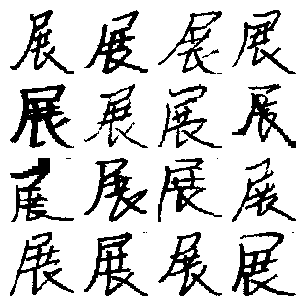 展展展展
展展展展
展展展展
展展展展